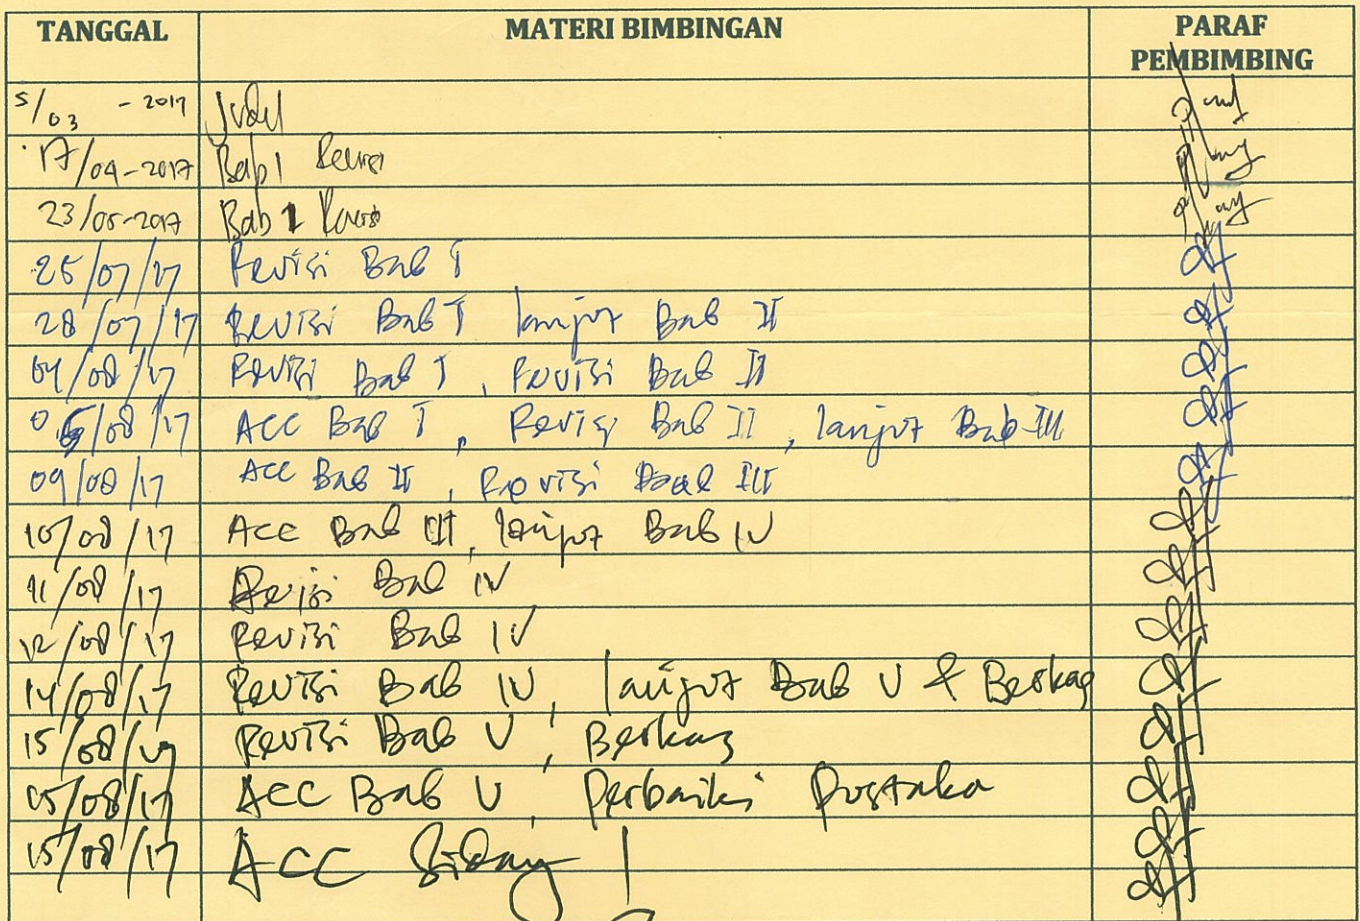 TANGGAL MATERI BIMBINGAN PARAF PEMBIMBING
5/03 - 2017 Judul
17/04-2017 Bab 1 Revisi
23/05-2017 Bab 1 Revisi
25/07/17 Revisi Bab I
28/07/17 Revisi Bab I lanjut Bab II
04/08/17 Revisi Bab I, Revisi Bab II
05/08/17 ACC Bab I, Revisi Bab II, lanjut Bab III
09/08/17 ACC Bab II, Revisi Bab III
10/08/17 ACC Bab III, lanjut Bab IV
11/08/17 Revisi Bab IV
12/08/17 Revisi Bab IV
14/08/17 Revisi Bab IV, lanjut Bab V & Berkas
15/08/17 Revisi Bab V, Berkas
15/08/17 ACC Bab V, Perbaiki Pustaka
15/08/17 ACC Sidang !